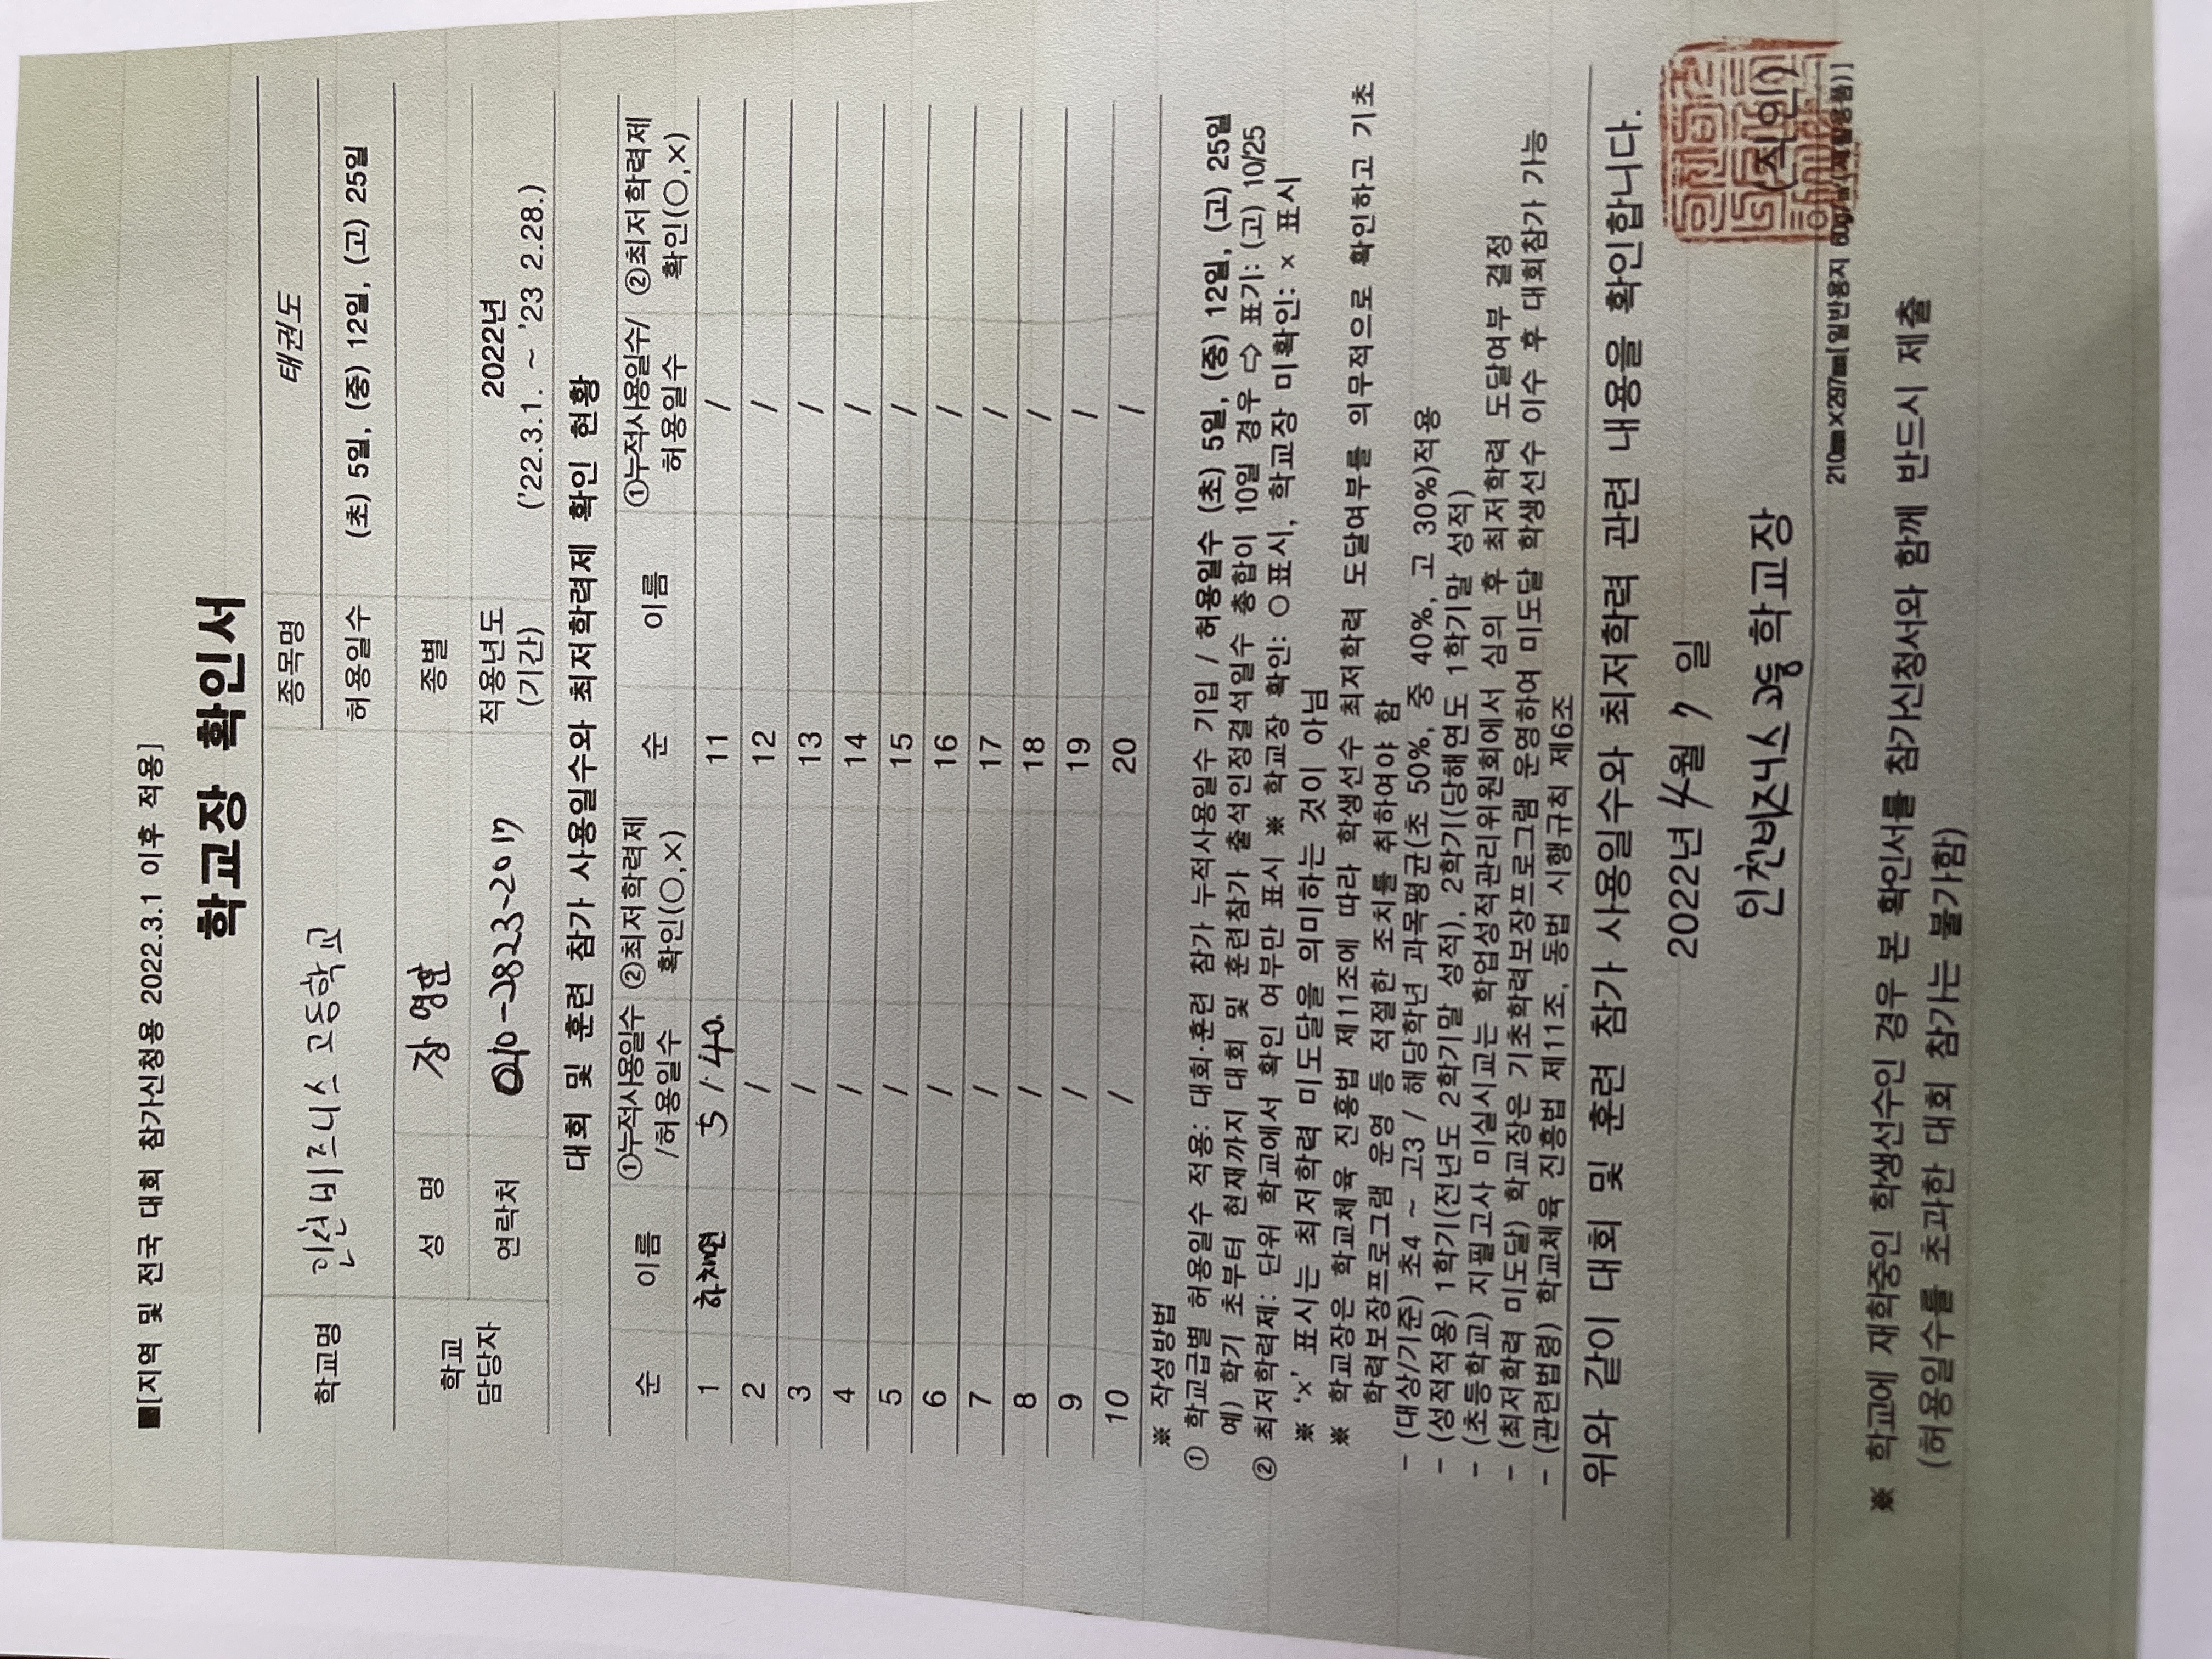 ■[지역 및 전국 대회 참가신청용 2022.3.1 이후 적용]
학교장 확인서
학교명 인천비즈니스 고등학교 종목명 태권도
허용일수 (초) 5일, (중) 12일, (고) 25일
학교 담당자 성 명 장영환 종별
연락처 010-2823-2017 적용년도 (기간) 2022년 ('22.3.1. ~ '23 2.28.)
대회 및 훈련 참가 사용일수와 최저학력제 확인 현황
순 이름 ①누적사용일수/허용일수 ②최저학력제 확인(○,×) 순 이름 ①누적사용일수/허용일수 ②최저학력제 확인(○,×)
1 5 / 40. 11 /
2 / 12 /
3 / 13 /
4 / 14 /
5 / 15 /
6 / 16 /
7 / 17 /
8 / 18 /
9 / 19 /
10 / 20 /
※ 작성방법
① 학교급별 허용일수 적용: 대회·훈련 참가 누적사용일수 기입 / 허용일수 (초) 5일, (중) 12일, (고) 25일
예) 학기 초부터 현재까지 대회 및 훈련참가 출석인정결석일수 총합이 10일 경우 ⇨ 표기: (고) 10/25
② 최저학력제: 단위 학교에서 확인 여부만 표시 ※ 학교장 확인: ○표시, 학교장 미확인: × 표시
※ '×' 표시는 최저학력 미도달을 의미하는 것이 아님
※ 학교장은 학교체육 진흥법 제11조에 따라 학생선수 최저학력 도달여부를 의무적으로 확인하고 기초
학력보장프로그램 운영 등 적절한 조치를 취하여야 함
- (대상/기준) 초4 ~ 고3 / 해당학년 과목평균(초 50%, 중 40%, 고 30%)적용
- (성적적용) 1학기(전년도 2학기말 성적), 2학기(당해연도 1학기말 성적)
- (초등학교) 지필고사 미실시교는 학업성적관리위원회에서 심의 후 최저학력 도달여부 결정
- (최저학력 미도달) 학교장은 기초학력보장프로그램 운영하여 미도달 학생선수 이수 후 대회참가 가능
- (관련법령) 학교체육 진흥법 제11조, 동법 시행규칙 제6조
위와 같이 대회 및 훈련 참가 사용일수와 최저학력 관련 내용을 확인합니다.
2022년 4월 7 일
인천비즈니스 고등 학교장 (직인)
210㎜×297㎜[일반용지 60g/㎡(재활용품)]
※ 학교에 재학중인 학생선수인 경우 본 확인서를 참가신청서와 함께 반드시 제출
(허용일수를 초과한 대회 참가는 불가함)